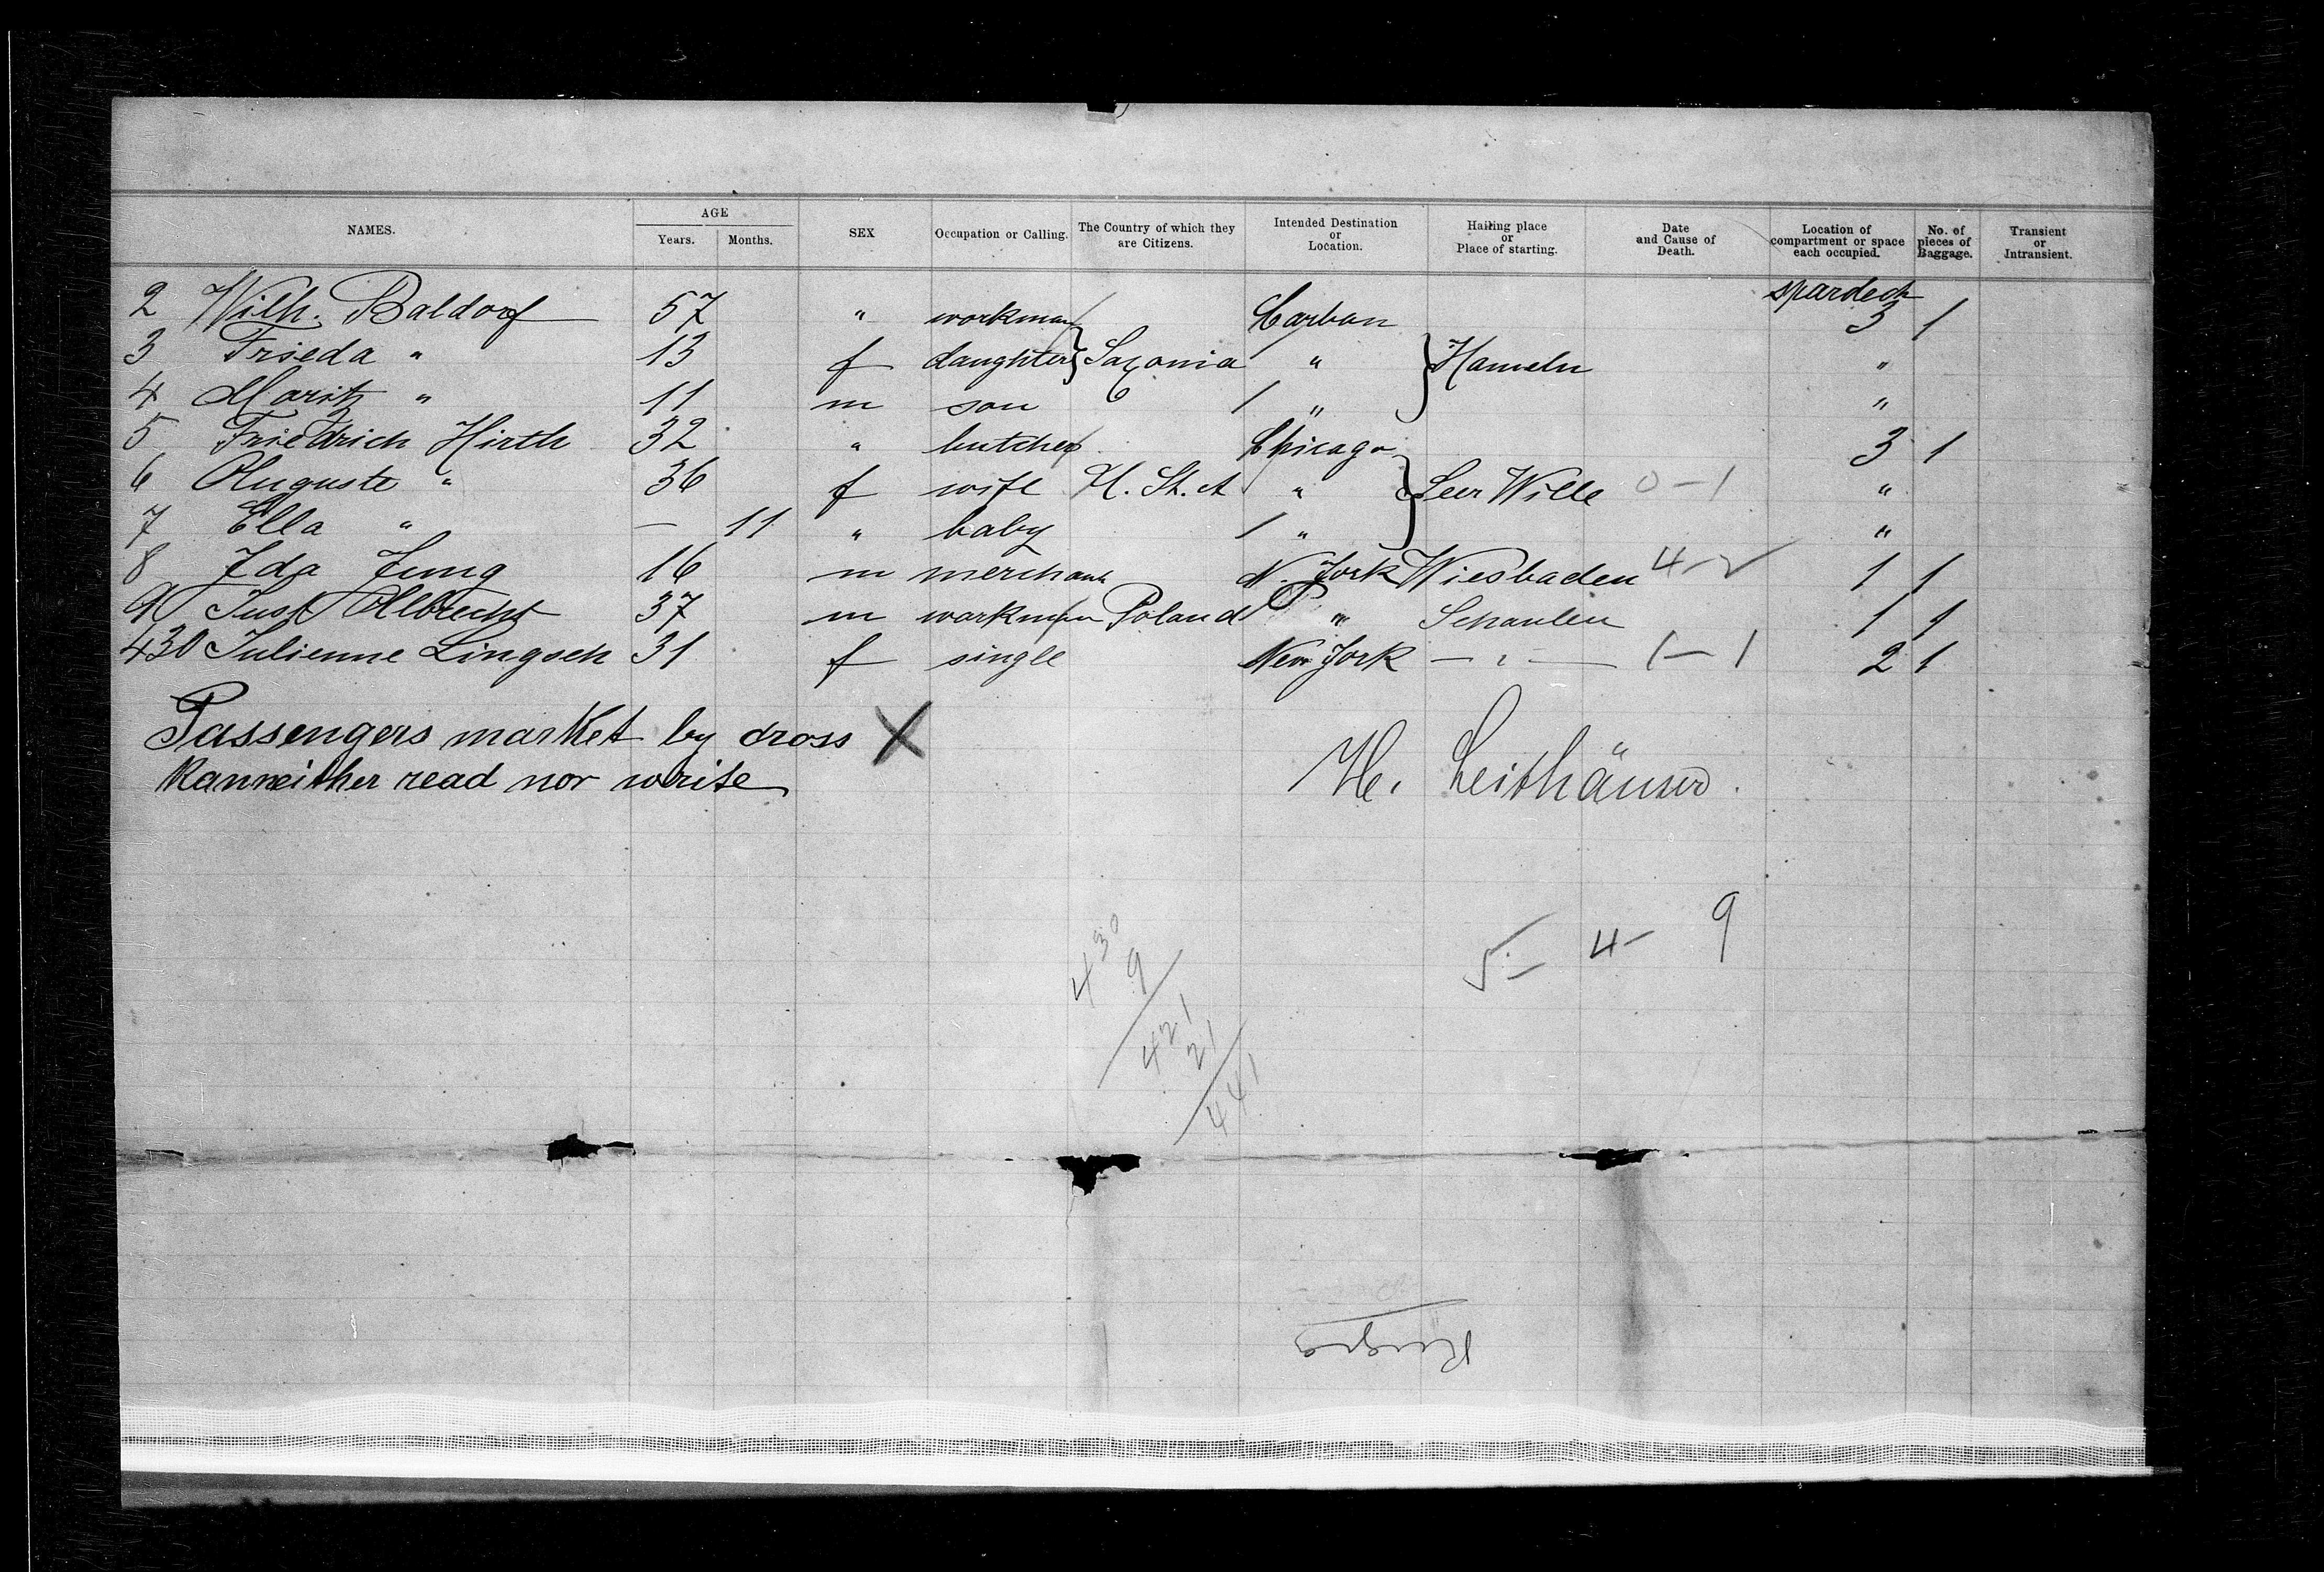 NAMES. AGE SEX Occupation or Calling. The Country of which they are Citizens. Intended Destination or Location. Hailing place or Place of starting. Date and Cause of Death. Location of compartment or space each occupied. No. of pieces of Baggage. Transient or Intransient.
Years. Months.
spardeck
2 Wilh. Baldorf 57 " workman Carbon 3 1
3 Frieda " 13 f daughter } Saxonia " } Hameln "
4 Moritz " 11 m son " "
5 Friedrich Hirth 32 " butcher Chicago 3 1
6 Auguste " 36 f wife U. St. A " } Leer Wille 0-1 "
7 Ella " — 11 " baby " "
8 Ida Jung 16 m merchant N. York Wiesbaden 4- 1 1
9 Just Albrecht 37 m workman Poland " Schaulen 1 1
430 Julienne Lingsch 31 f single New York — " — 1-1 2 1
Passengers market by cross X
kan neither read nor write
H. Leithäuser.
5- 4- 9
430
9
421
21
441